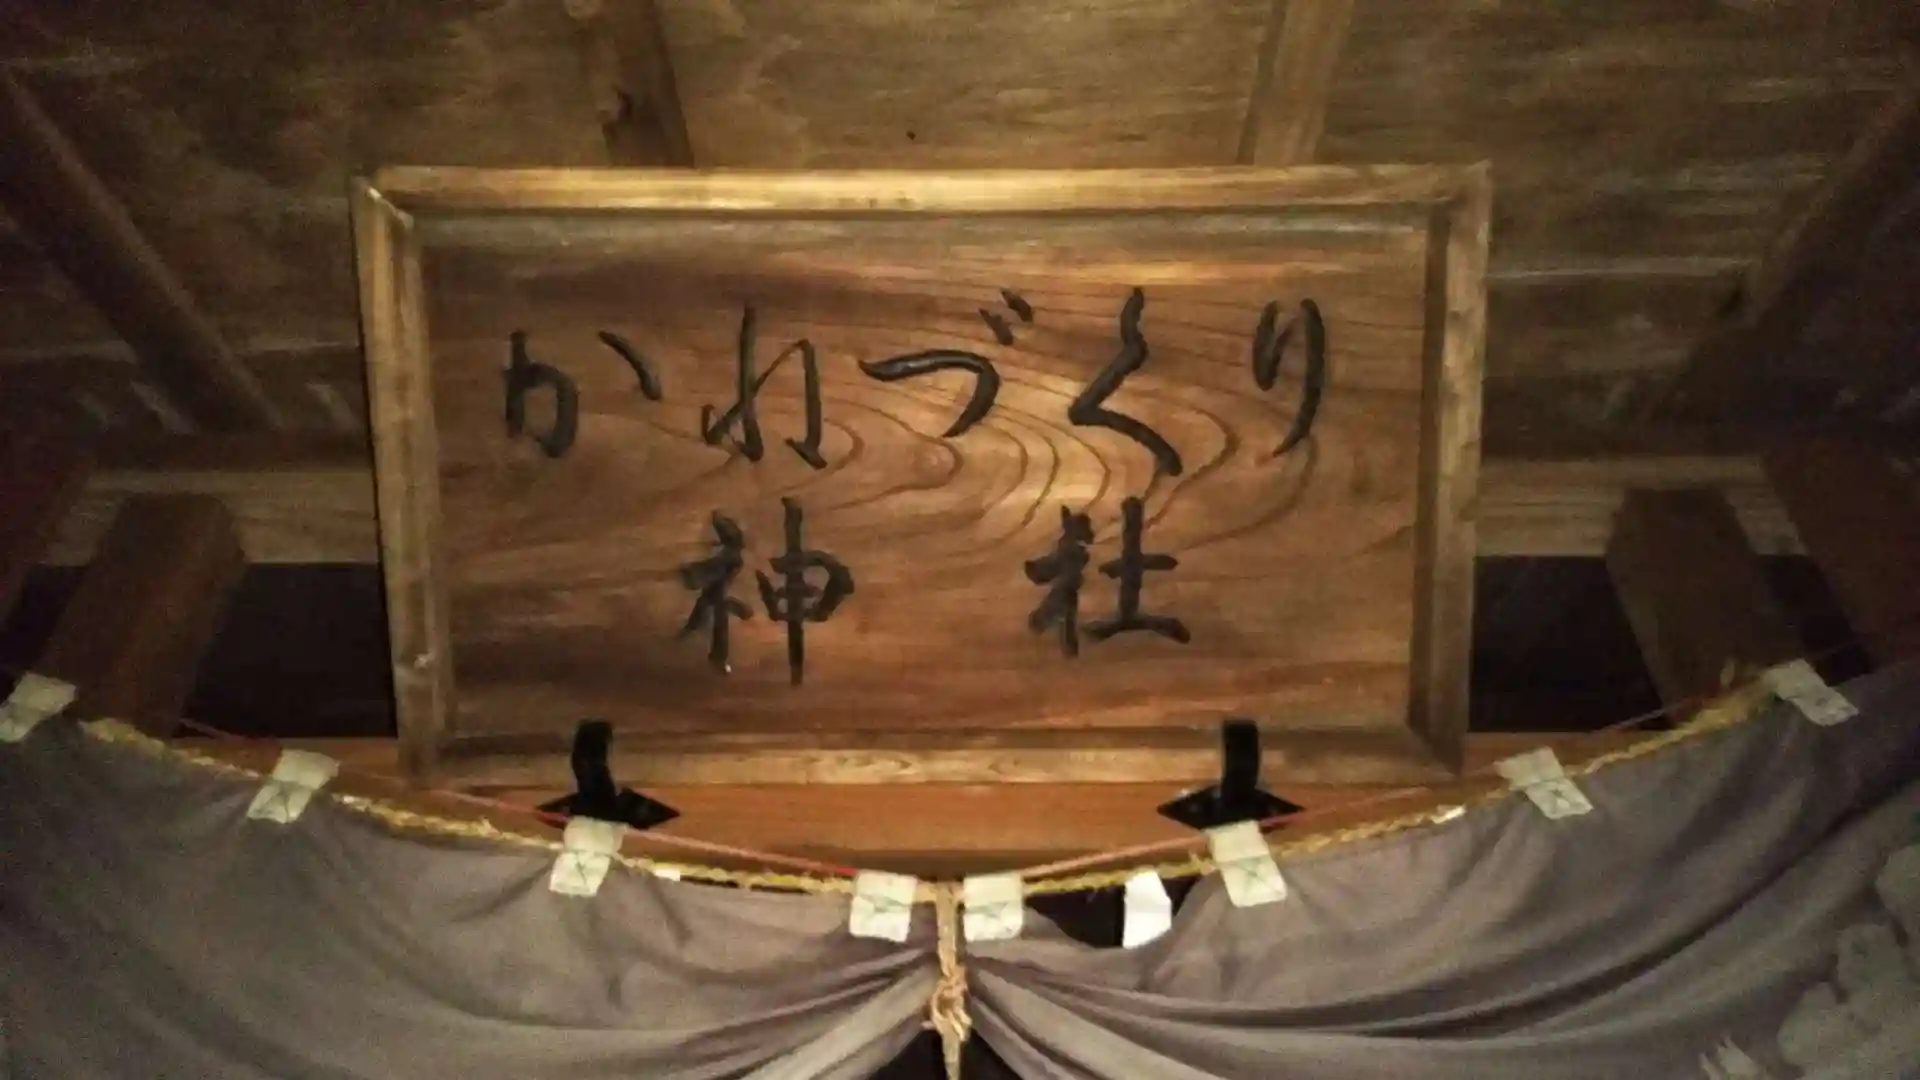 かねづくり
神社